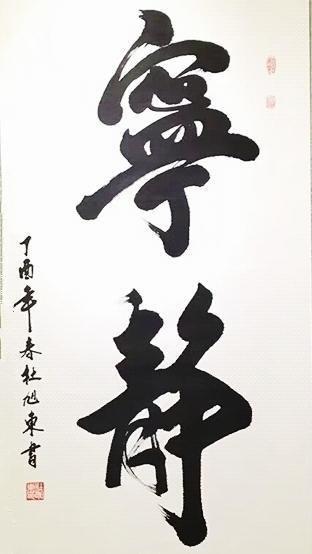 寧靜
丁酉年春杜旭東書